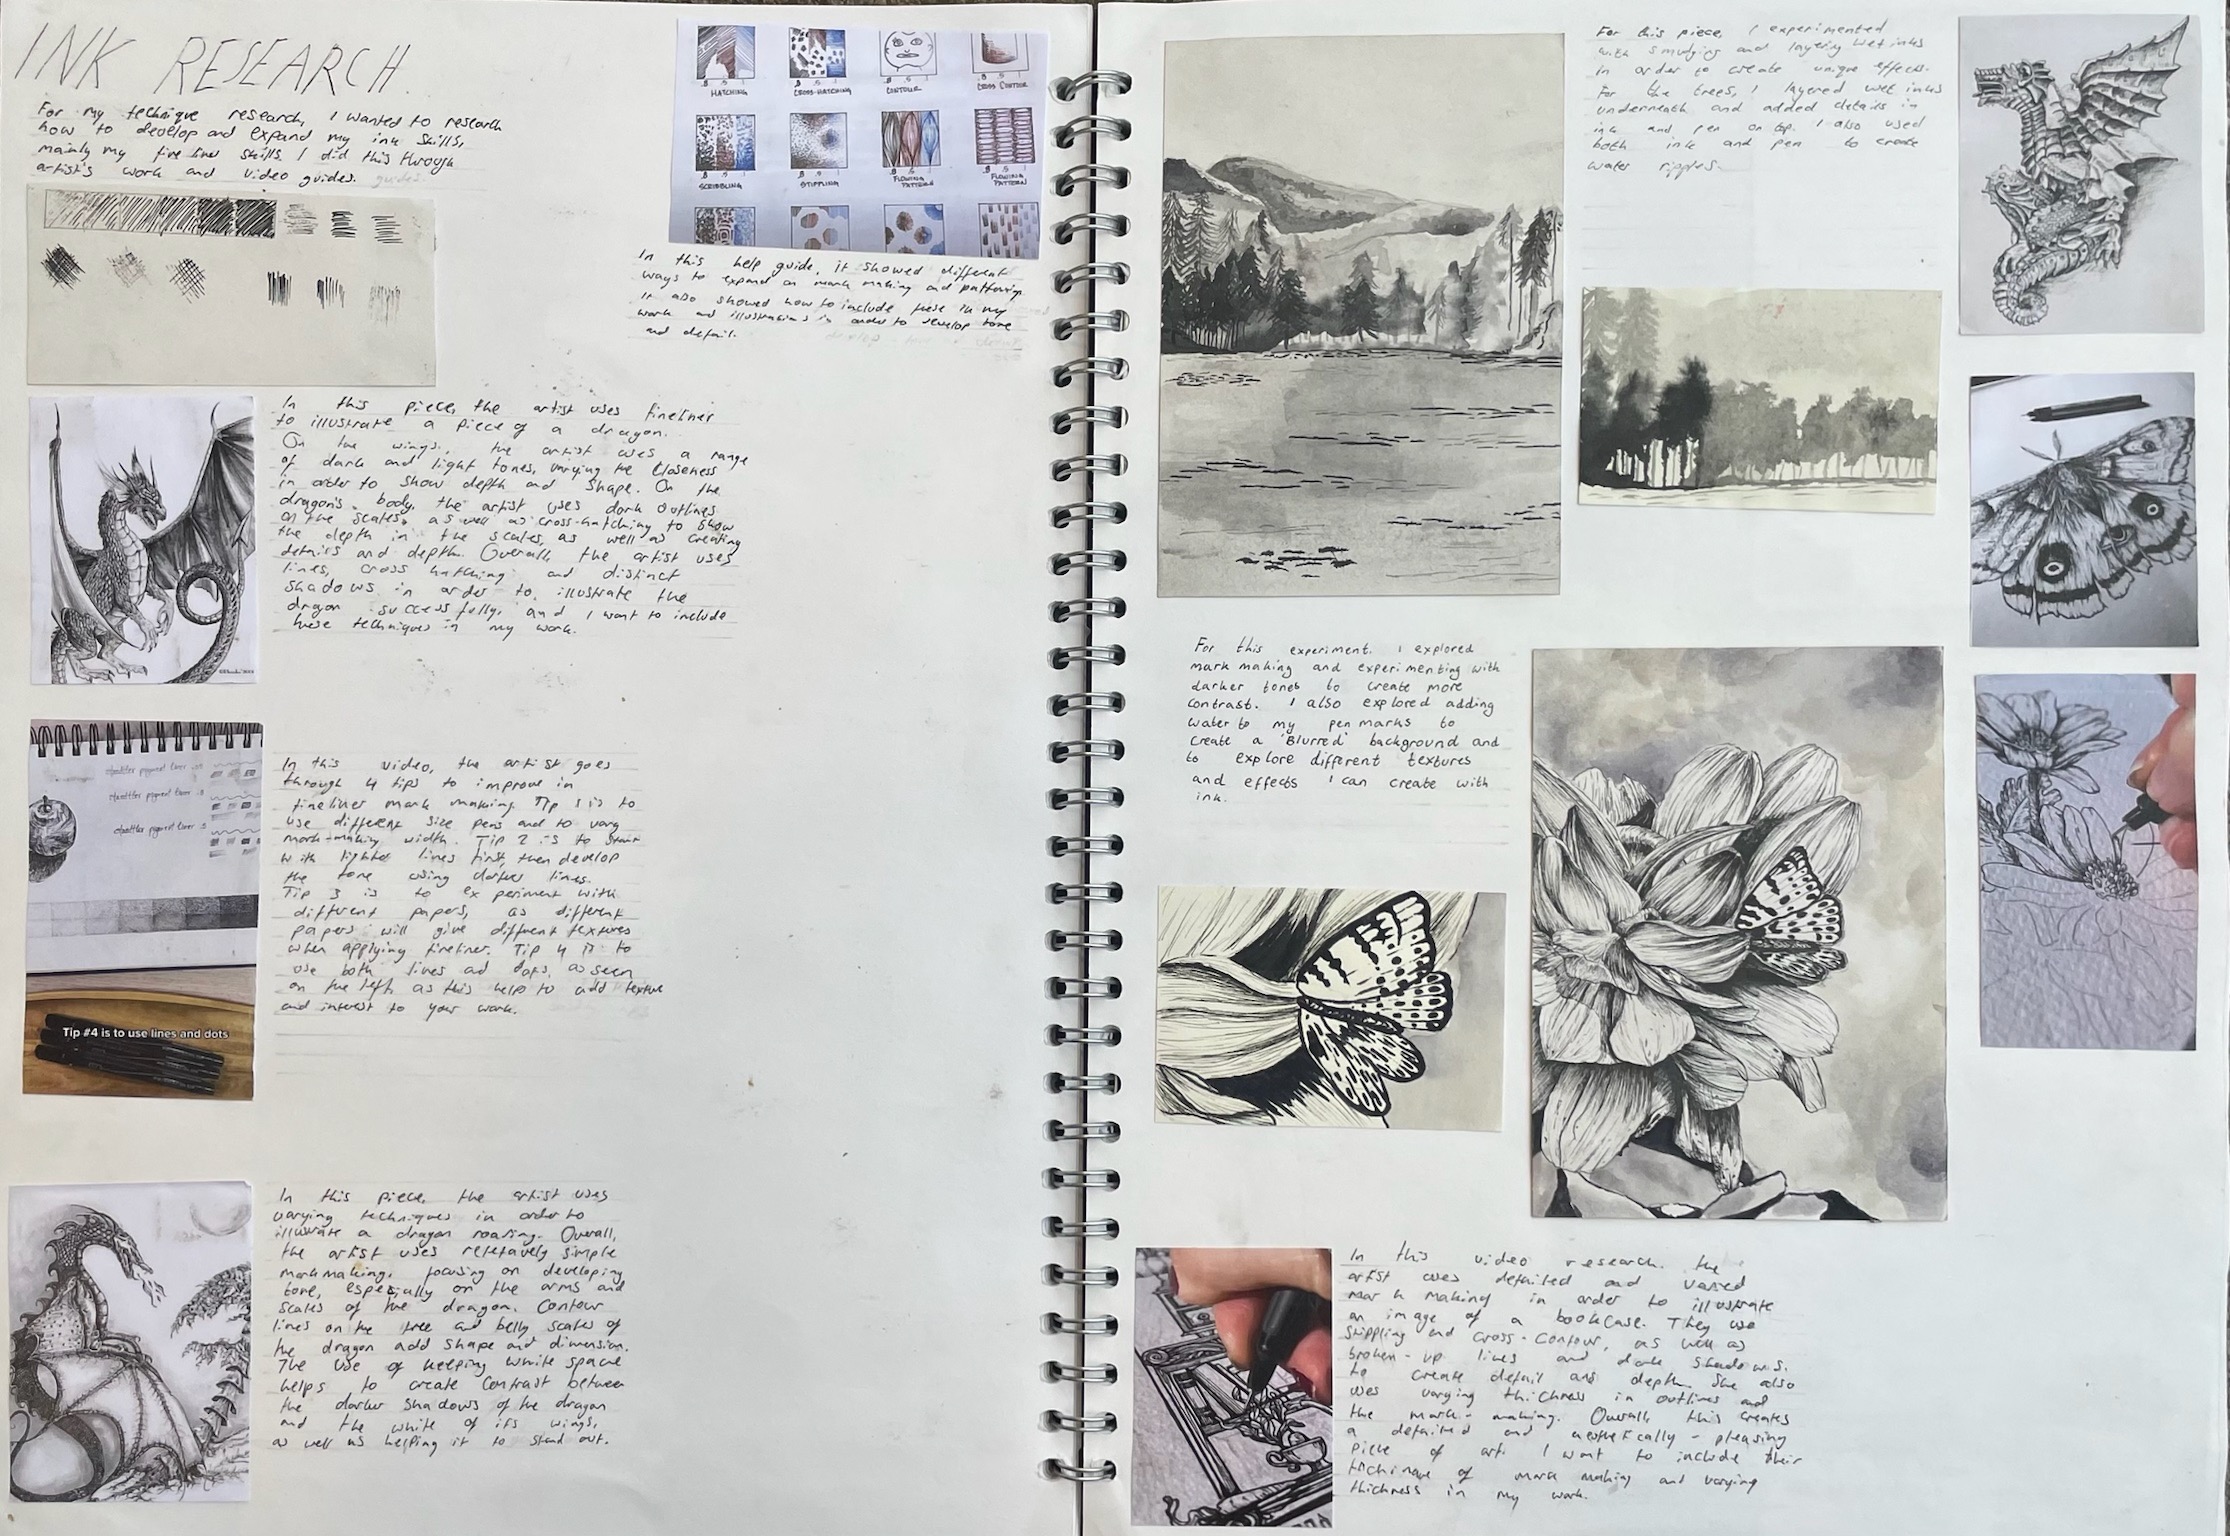 INK RESEARCH.
For my technique research, I wanted to research
how to develop and expand my ink skills,
mainly my fine liner skills. I did this through
artist's work and video guides. guides.
HATCHING
CROSS-HATCHING
CONTOUR
CROSS CONTOUR
SCRIBBLING
STIPPLING
FLOWING PATTERN
FLOWING PATTERN
In this help guide, it showed different
ways to expand on mark making and patterning.
It also showed how to include these in my
work and illustrations in order to develop tone
and detail.
In this piece, the artist uses fineliner
to illustrate a piece of a dragon.
On the wings, the artist uses a range
of dark and light tones, varying the closeness
in order to show depth and shape. On the
dragon's body, the artist uses dark outlines
on the scales, as well as cross-hatching to show
the depth in the scales, as well as creating
details and depth. Overall, the artist uses
lines, cross hatching and distinct
shadows in order to illustrate the
dragon successfully, and I want to include
these techniques in my work.
In this video, the artist goes
through 4 tips to improve in
fineliner mark making. Tip 1 is to
use different size pens and to vary
mark-making width. Tip 2 is to start
with lighter lines first, then develop
the tone using darker lines.
Tip 3 is to experiment with
different papers, as different
papers will give different textures
when applying fineliner. Tip 4 is to
use both lines and dots, as seen
on the left, as this help to add texture
and interest to your work.
Tip #4 is to use lines and dots
In this piece, the artist uses
varying techniques in order to
illustrate a dragon roaring. Overall,
the artist uses reletavely simple
mark making, focusing on developing
tone, especially on the arms and
scales of the dragon. Contour
lines on the tree and belly scales of
the dragon add shape and dimension.
The use of keeping white space
helps to create contrast between
the darker shadows of the dragon
and the white of its wings,
as well as helping it to stand out.
For this piece, I experimented
with smudging and layering wet inks
in order to create unique effects.
For the trees, I layered wet inks
underneath and added details in
ink and pen on top. I also used
both ink and pen to create
water ripples.
For this experiment, I explored
mark making and experimenting with
darker tones to create more
contrast. I also explored adding
water to my pen marks to
create a 'Blurred' background and
to explore different textures
and effects I can create with
ink.
In this video research, the
artist uses detailed and varied
mark making in order to illustrate
an image of a bookcase. They use
stippling and cross-contour, as well as
broken-up lines and dark shadows.
to create detail and depth. She also
uses varying thickness in outlines and
the mark-making. Overall, this creates
a detailed and aesthetically-pleasing
piece of art. I want to include their
technique of mark making and varying
thickness in my work.